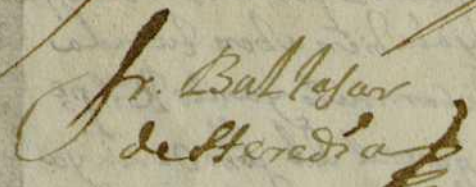 fr. Baltasar
de Heredia